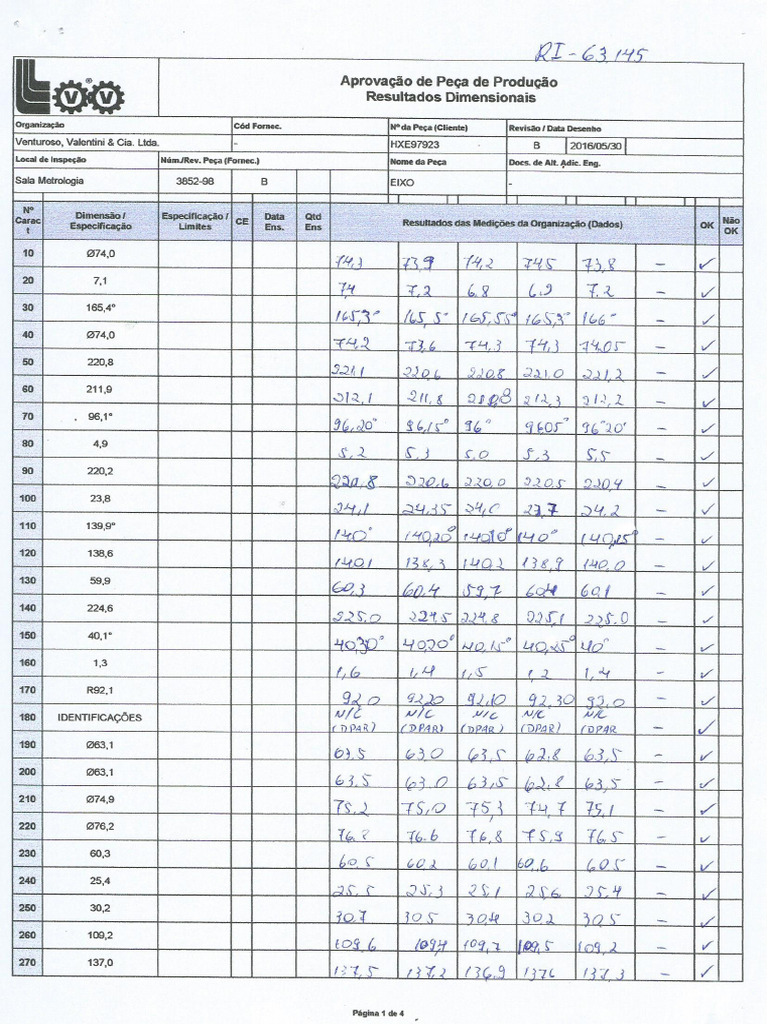 RI-63.145
Aprovação de Peça de Produção
Resultados Dimensionais
Organização Cód Fornec. Nº da Peça (Cliente) Revisão / Data Desenho
Venturoso, Valentini & Cia. Ltda. - HXE97923 B 2016/05/30
Local de Inspeção Núm./Rev. Peça (Fornec.) Nome da Peça Docs. de Alt. Adic. Eng.
Sala Metrologia 3852-98 B EIXO -
Nº Caract Dimensão / Especificação Especificação / Limites CE Data Ens. Qtd Ens Resultados das Medições da Organização (Dados) OK Não OK
10 Ø74,0 74,3 73,9 74,2 74,5 73,8 - ✓
20 7,1 7,1 7,2 6.8 6.9 7.2 - ✓
30 165,4° 165,3° 165,5° 165,55° 165,3° 166° - ✓
40 Ø74,0 74.2 73,6 74,3 74,3 74.05 - ✓
50 220,8 221.1 220.6 220.8 221.0 221.2 - ✓
60 211,9 212.1 211,8 212.3 212.2 - ✓
70 96,1° 96,20° 96,15° 96° 96.05° 96°20' - ✓
80 4,9 5,2 5,3 5.0 5,3 5,5 - ✓
90 220,2 220,8 220,6 220,0 220.5 220,4 - ✓
100 23,8 24,1 24,35 24,0 23,7 24.2 - ✓
110 139,9° 140° 140,20° 140,10° 140° 140,15° - ✓
120 138,6 140,1 138,3 140,2 138,9 140.0 - ✓
130 59,9 60,3 60.4 59,7 60,4 60,1 - ✓
140 224,6 225.0 224.5 224.8 225,1 225.0 - ✓
150 40,1° 40,30° 40,20° 40,15° 40,25° 40° - ✓
160 1,3 1,6 1,4 1,5 1,2 1,4 - ✓
170 R92,1 92,0 92,20 92,10 92,30 92,0 - ✓
180 IDENTIFICAÇÕES N/C (DPAR) N/C (DPAR) N/C (DPAR) N/C (DPAR) N/C (DPAR - ✓
190 Ø63,1 63.5 63.0 63.5 62.8 63,5 - ✓
200 Ø63,1 63.5 63.0 63,5 62.8 63,5 - ✓
210 Ø74,9 75,2 75,0 75,3 74,7 75,1 - ✓
220 Ø76,2 76.8 76.6 76,8 75,9 76,5 - ✓
230 60,3 60,5 60,2 60,1 60,6 60,5 - ✓
240 25,4 25,5 25,3 25,1 25,6 25,4 - ✓
250 30,2 30.7 30,5 30,4 30,2 30,5 - ✓
260 109,2 109,6 109,4 109,7 109,5 109,2 - ✓
270 137,0 137,5 137,2 136,9 137,6 137,3 - ✓
Página 1 de 4